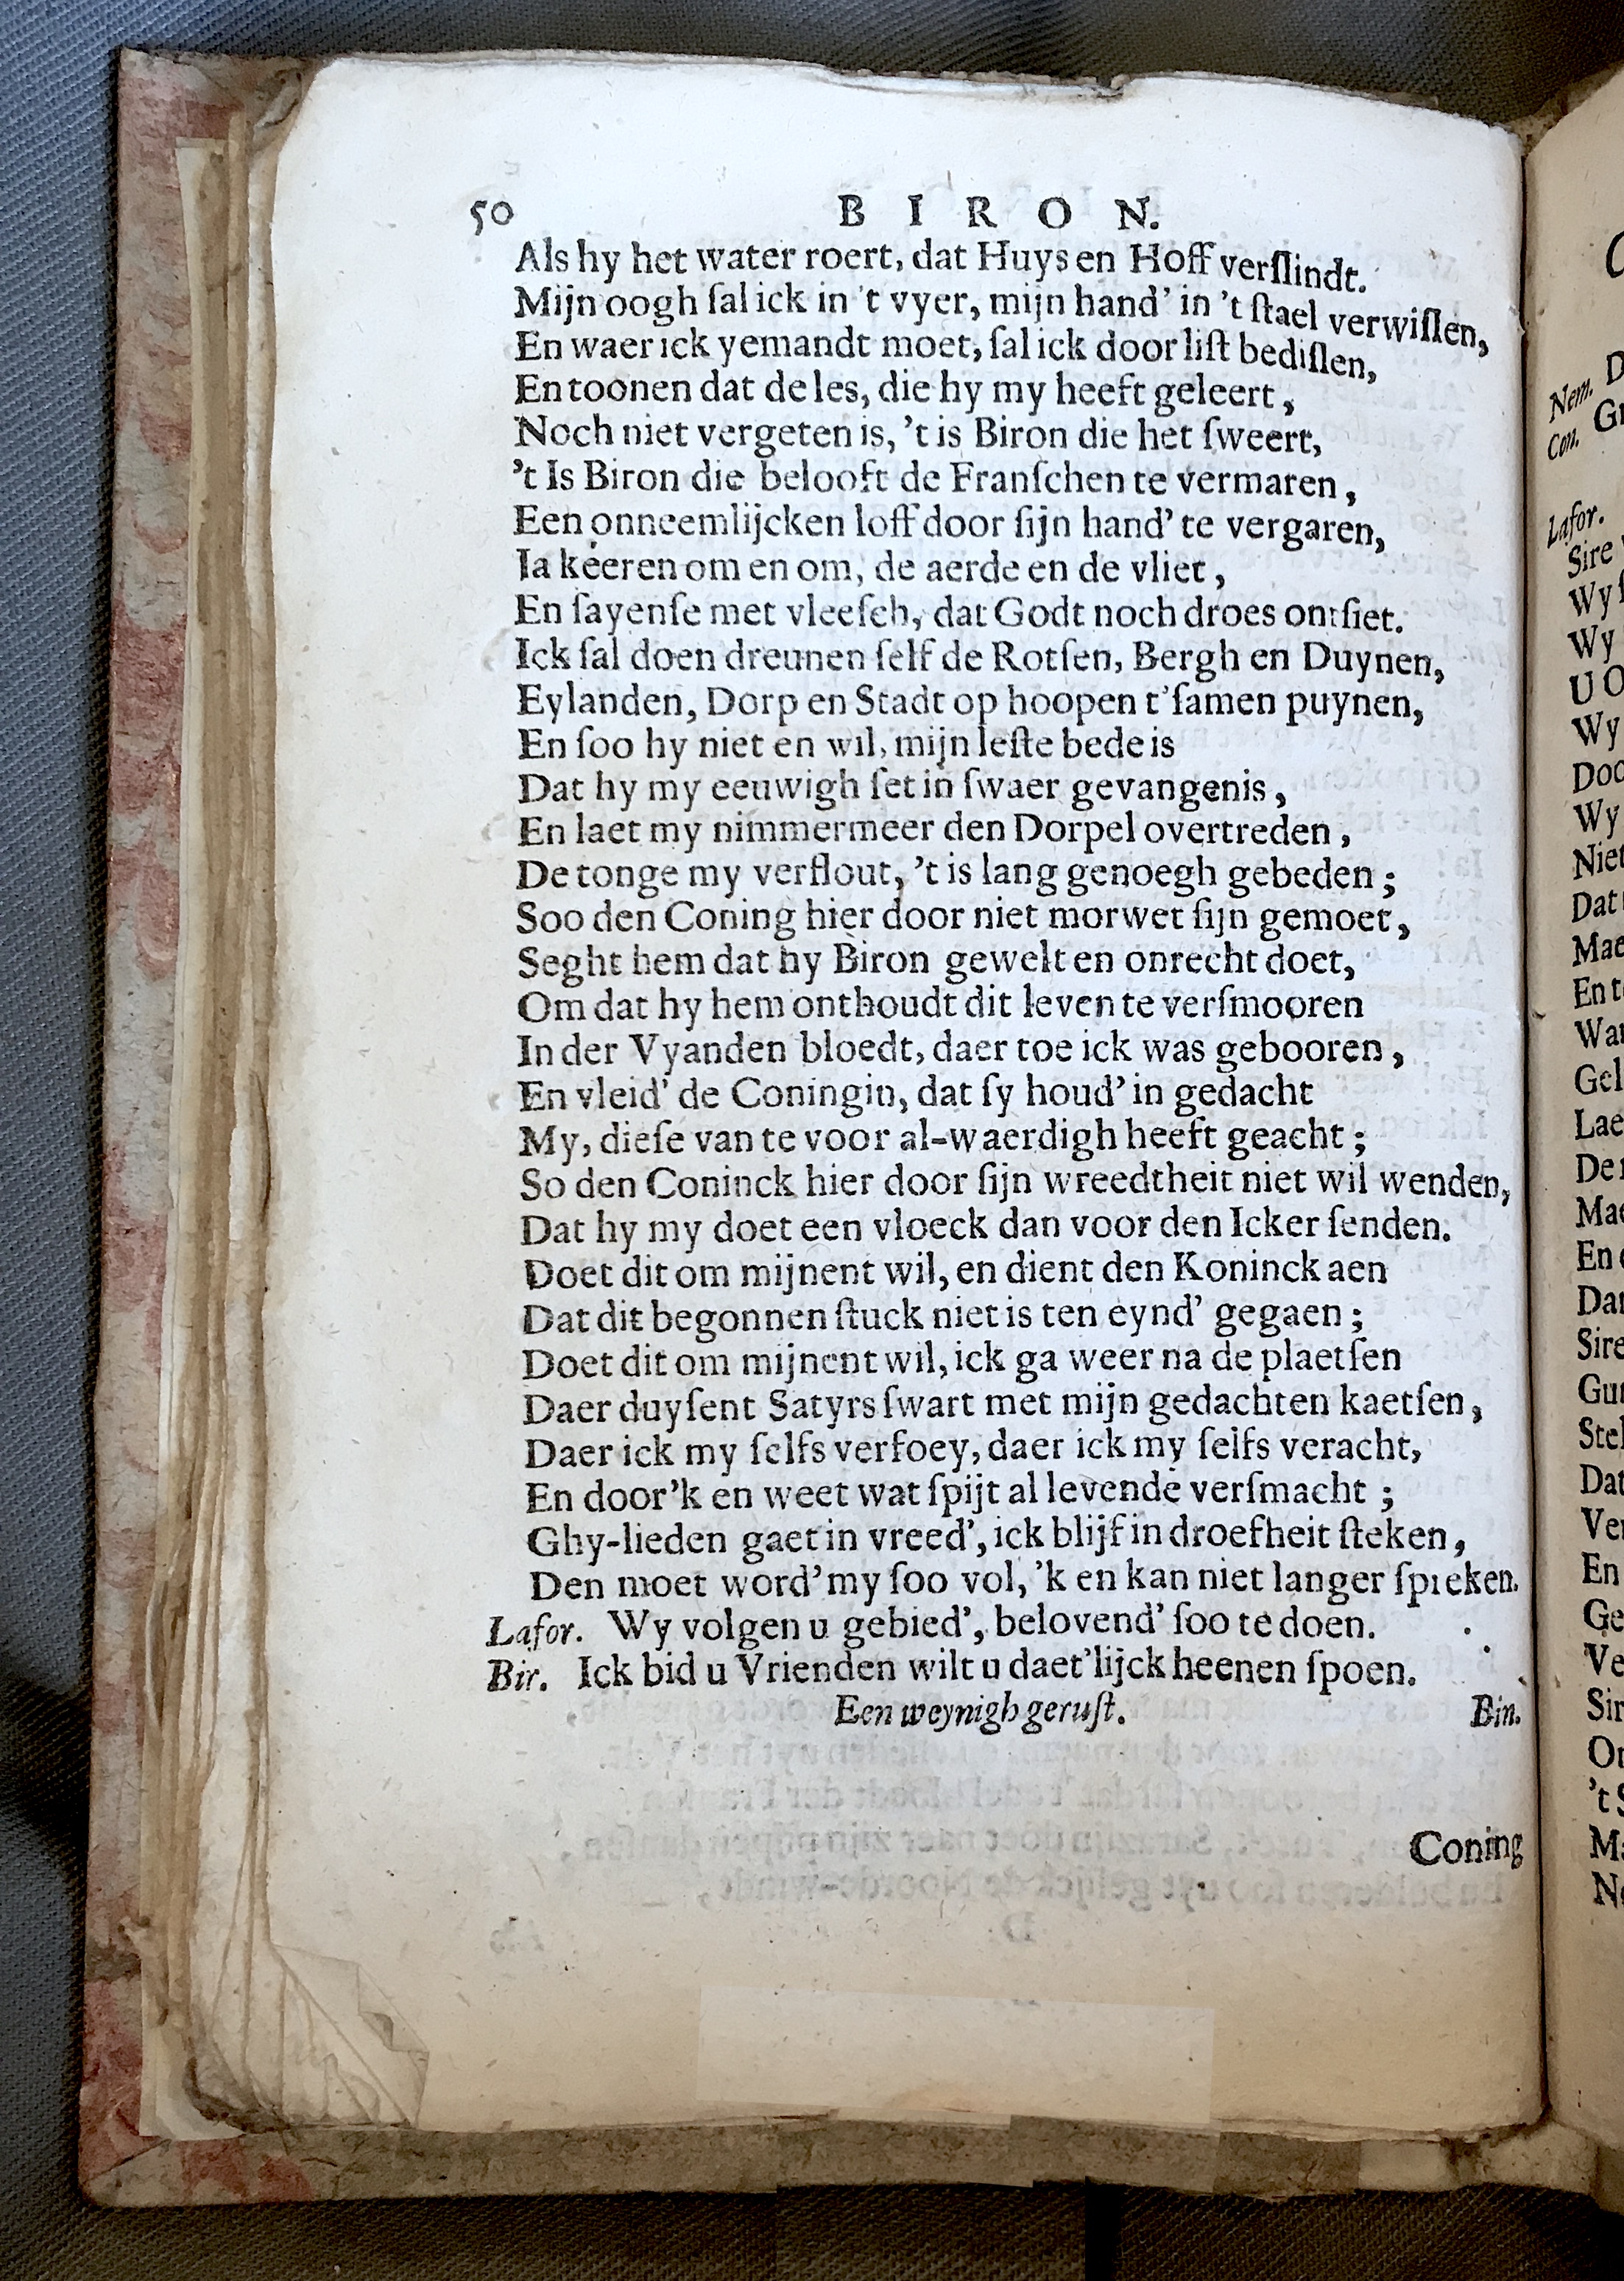 50 BIRON.
Als hy het water roert, dat Huys en Hoff verſlindt.
Mijn oogh ſal ick in 't vyer, mijn hand' in 't ſtael verwiſſen,
En waer ick yemandt moet, ſal ick door liſt bediſſen,
En toonen dat de les, die hy my heeft geleert,
Noch niet vergeten is, 't is Biron die het ſweert,
't Is Biron die belooft de Franſchen te vermaren,
Een onneemlijcken loff door ſijn hand' te vergaren,
Ia keeren om en om, de aerde en de vliet,
En ſayenſe met vleeſch, dat Godt noch droes ontſiet.
Ick ſal doen dreunen ſelf de Rotſen, Bergh en Duynen,
Eylanden, Dorp en Stadt op hoopen t'ſamen puynen,
En ſoo hy niet en wil, mijn leſte bede is
Dat hy my eeuwigh ſet in ſwaer gevangenis,
En laet my nimmermeer den Dorpel overtreden,
De tonge my verflout, 't is lang genoegh gebeden;
Soo den Coning hier door niet morwet ſijn gemoet,
Seght hem dat hy Biron gewelt en onrecht doet,
Om dat hy hem onthoudt dit leven te verſmooren
In der Vyanden bloedt, daer toe ick was gebooren,
En vleid' de Coningin, dat ſy houd' in gedacht
My, dieſe van te voor al-waerdigh heeft geacht;
So den Coninck hier door ſijn wreedtheit niet wil wenden,
Dat hy my doet een vloeck dan voor den Icker ſenden.
Doet dit om mijnent wil, en dient den Koninck aen
Dat dit begonnen ſtuck niet is ten eynd' gegaen;
Doet dit om mijnent wil, ick ga weer na de plaetſen
Daer duyſent Satyrs ſwart met mijn gedachten kaetſen,
Daer ick my ſelfs verfoey, daer ick my ſelfs veracht,
En door'k en weet wat ſpijt al levende verſmacht;
Ghy-lieden gaet in vreed', ick blijf in droefheit ſteken,
Den moet word'my ſoo vol, 'k en kan niet langer ſpreken.
Lafor. Wy volgen u gebied', belovend' ſoo te doen.
Bir. Ick bid u Vrienden wilt u daet'lijck heenen ſpoen.
Een weynigh geruſt. Bin.
Coning
Nem.
Con.
Lafor.
Sire
Wy
Wy
Wy
Wy
Sire